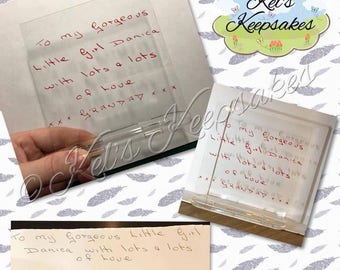 Kel's
Keepsakes
To my Gorgeous
Little Girl Danica
with lots & lots
of Love
x x x GRANDAD x x x
© Kel's Keepsakes
To my Gorgeous
Little Girl Danica
with lots & lots
of Love
x x x GRANDAD x x x
To my Gorgeous Little Girl
Danica with lots & lots
of Love